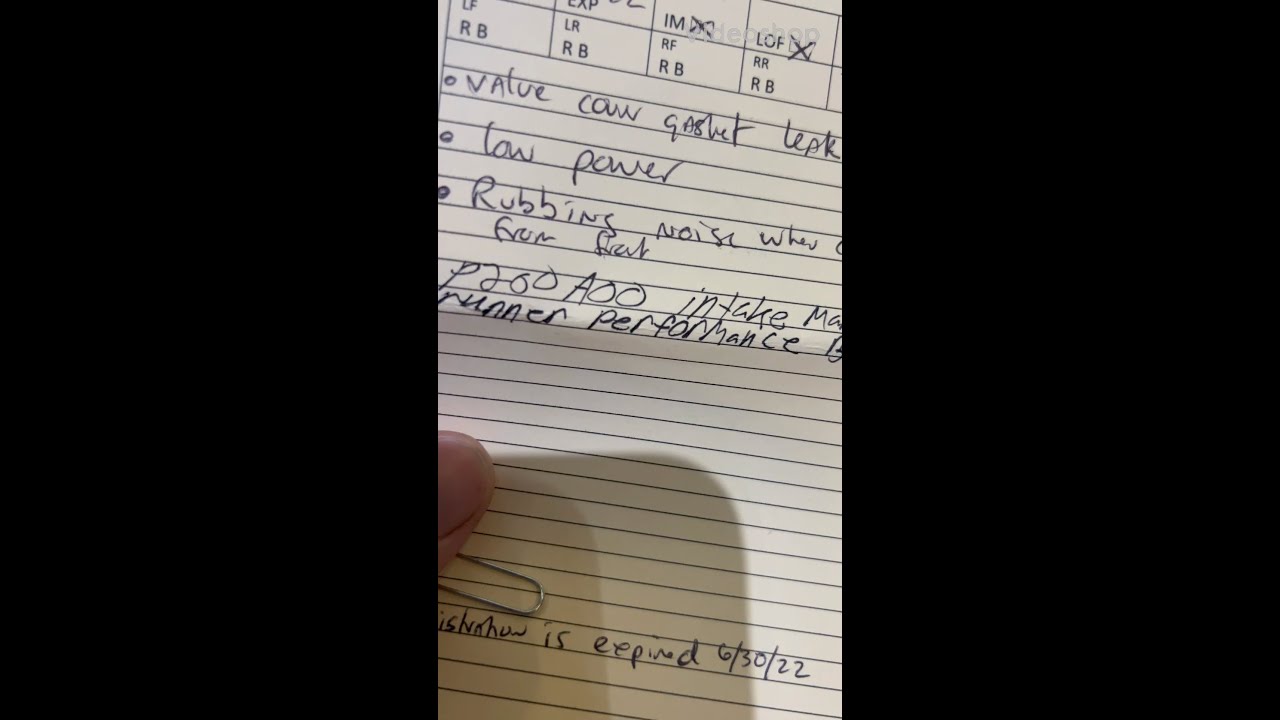 LF EXP IM LOF
R B LR RF RR
R B R B R B
• VALVE COVER gASket leAk
• low power
• RubbiNg NoiSe wheN
from front
P200A00 intake Ma
runner performance B
istration is expired 6/30/22
videoshop